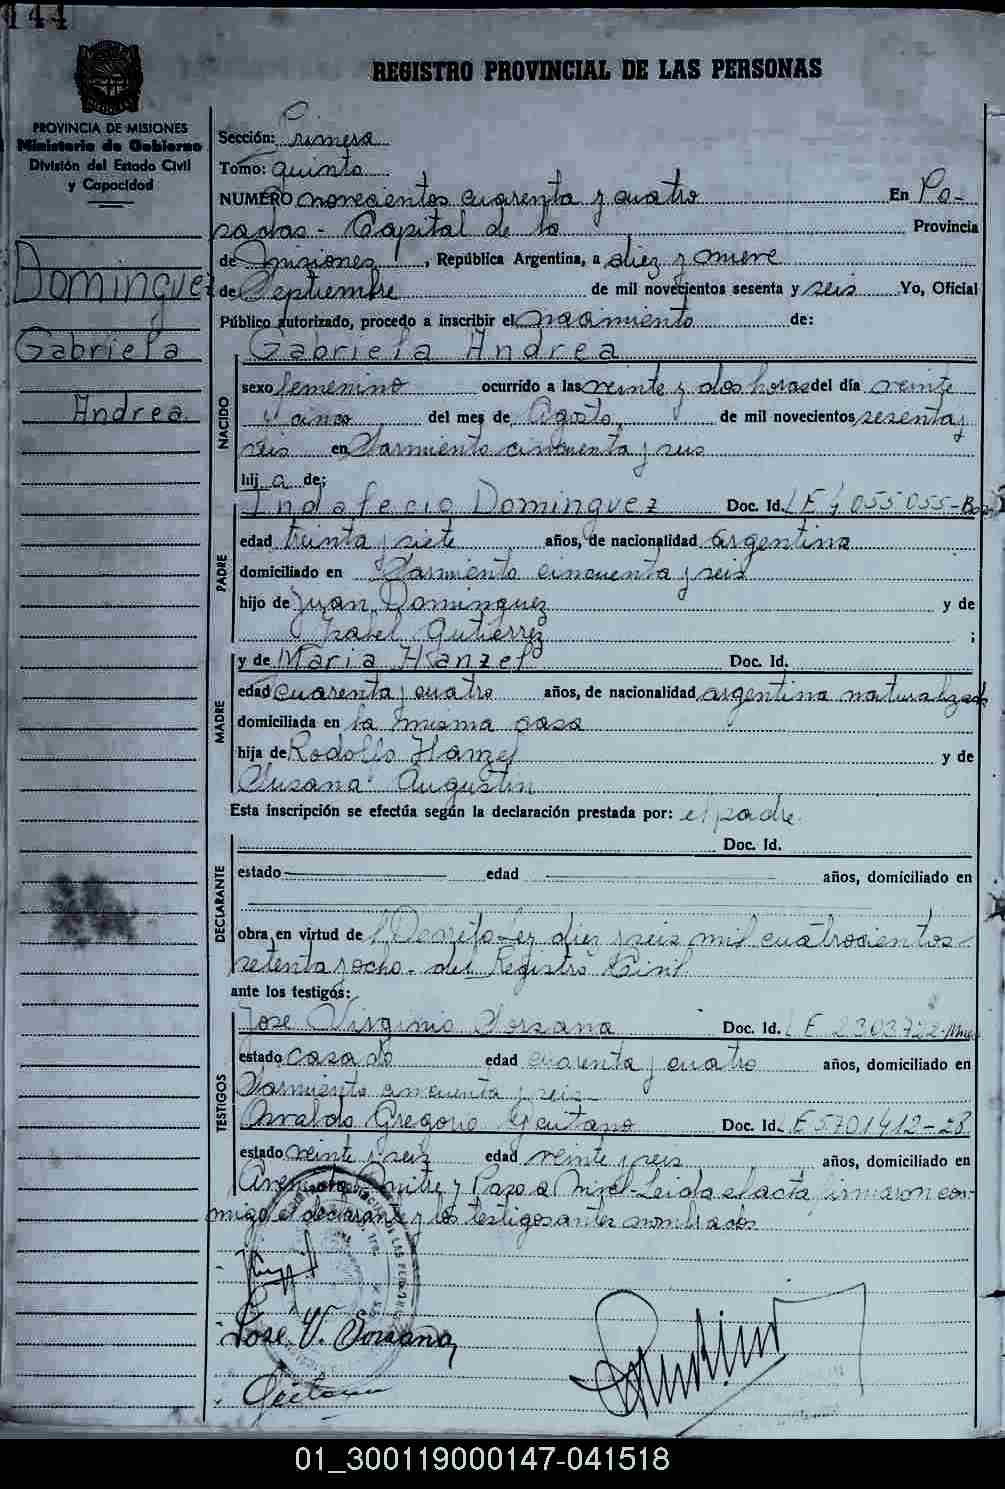 144
REGISTRO PROVINCIAL DE LAS PERSONAS
PROVINCIA DE MISIONES
Ministerio de Gobierno
División del Estado Civil
y Capacidad
Dominguez
Gabriela
Andrea
Sección: Primera
Tomo: quinto
NUMERO novecientos cuarenta y cuatro En Po-
sadas - Capital de la Provincia
de Misiones, República Argentina, a diez y nueve
de Septiembre de mil novecientos sesenta y seis Yo, Oficial
Público autorizado, procedo a inscribir el nacimiento de:
Gabriela Andrea
NACIDO
sexo femenino ocurrido a las veinte y dos horas del día veinte
y cinco del mes de Agosto, de mil novecientos sesenta y
seis en Sarmiento cincuenta y seis
hij a de;
PADRE
Indalecio Dominguez Doc. Id. L E 4 055 055-
edad treinta y siete años, de nacionalidad argentina
domiciliado en Sarmiento cincuenta y seis
hijo de Juan Dominguez y de
Isabel Gutierrez ;
MADRE
y de Maria Hanzel Doc. Id.
edad cuarenta y cuatro años, de nacionalidad argentina naturalizada
domiciliada en la misma casa
hija de Rodolfo Hanzel y de
Susana Augustin
Esta inscripción se efectúa según la declaración prestada por: el padre
DECLARANTE
Doc. Id.
estado edad años, domiciliado en
obra en virtud de Decreto-Ley diez y seis mil cuatrocientos
setenta y ocho - del Registro Civil
ante los testigos:
TESTIGOS
Jose Virginio Sorsana Doc. Id. L E 2303722-
estado casado edad cuarenta y cuatro años, domiciliado en
Sarmiento cincuenta y seis
Osvaldo Gregorio Geitano Doc. Id. L E 5701412-28
estado veinte y seis edad veinte y seis años, domiciliado en
Avenida Mitre y Paso a Nivel- Leida el acta, firmaron con-
migo el declarante y los testigos antes nombrados
Jose V. Sorsana
01_300119000147-041518